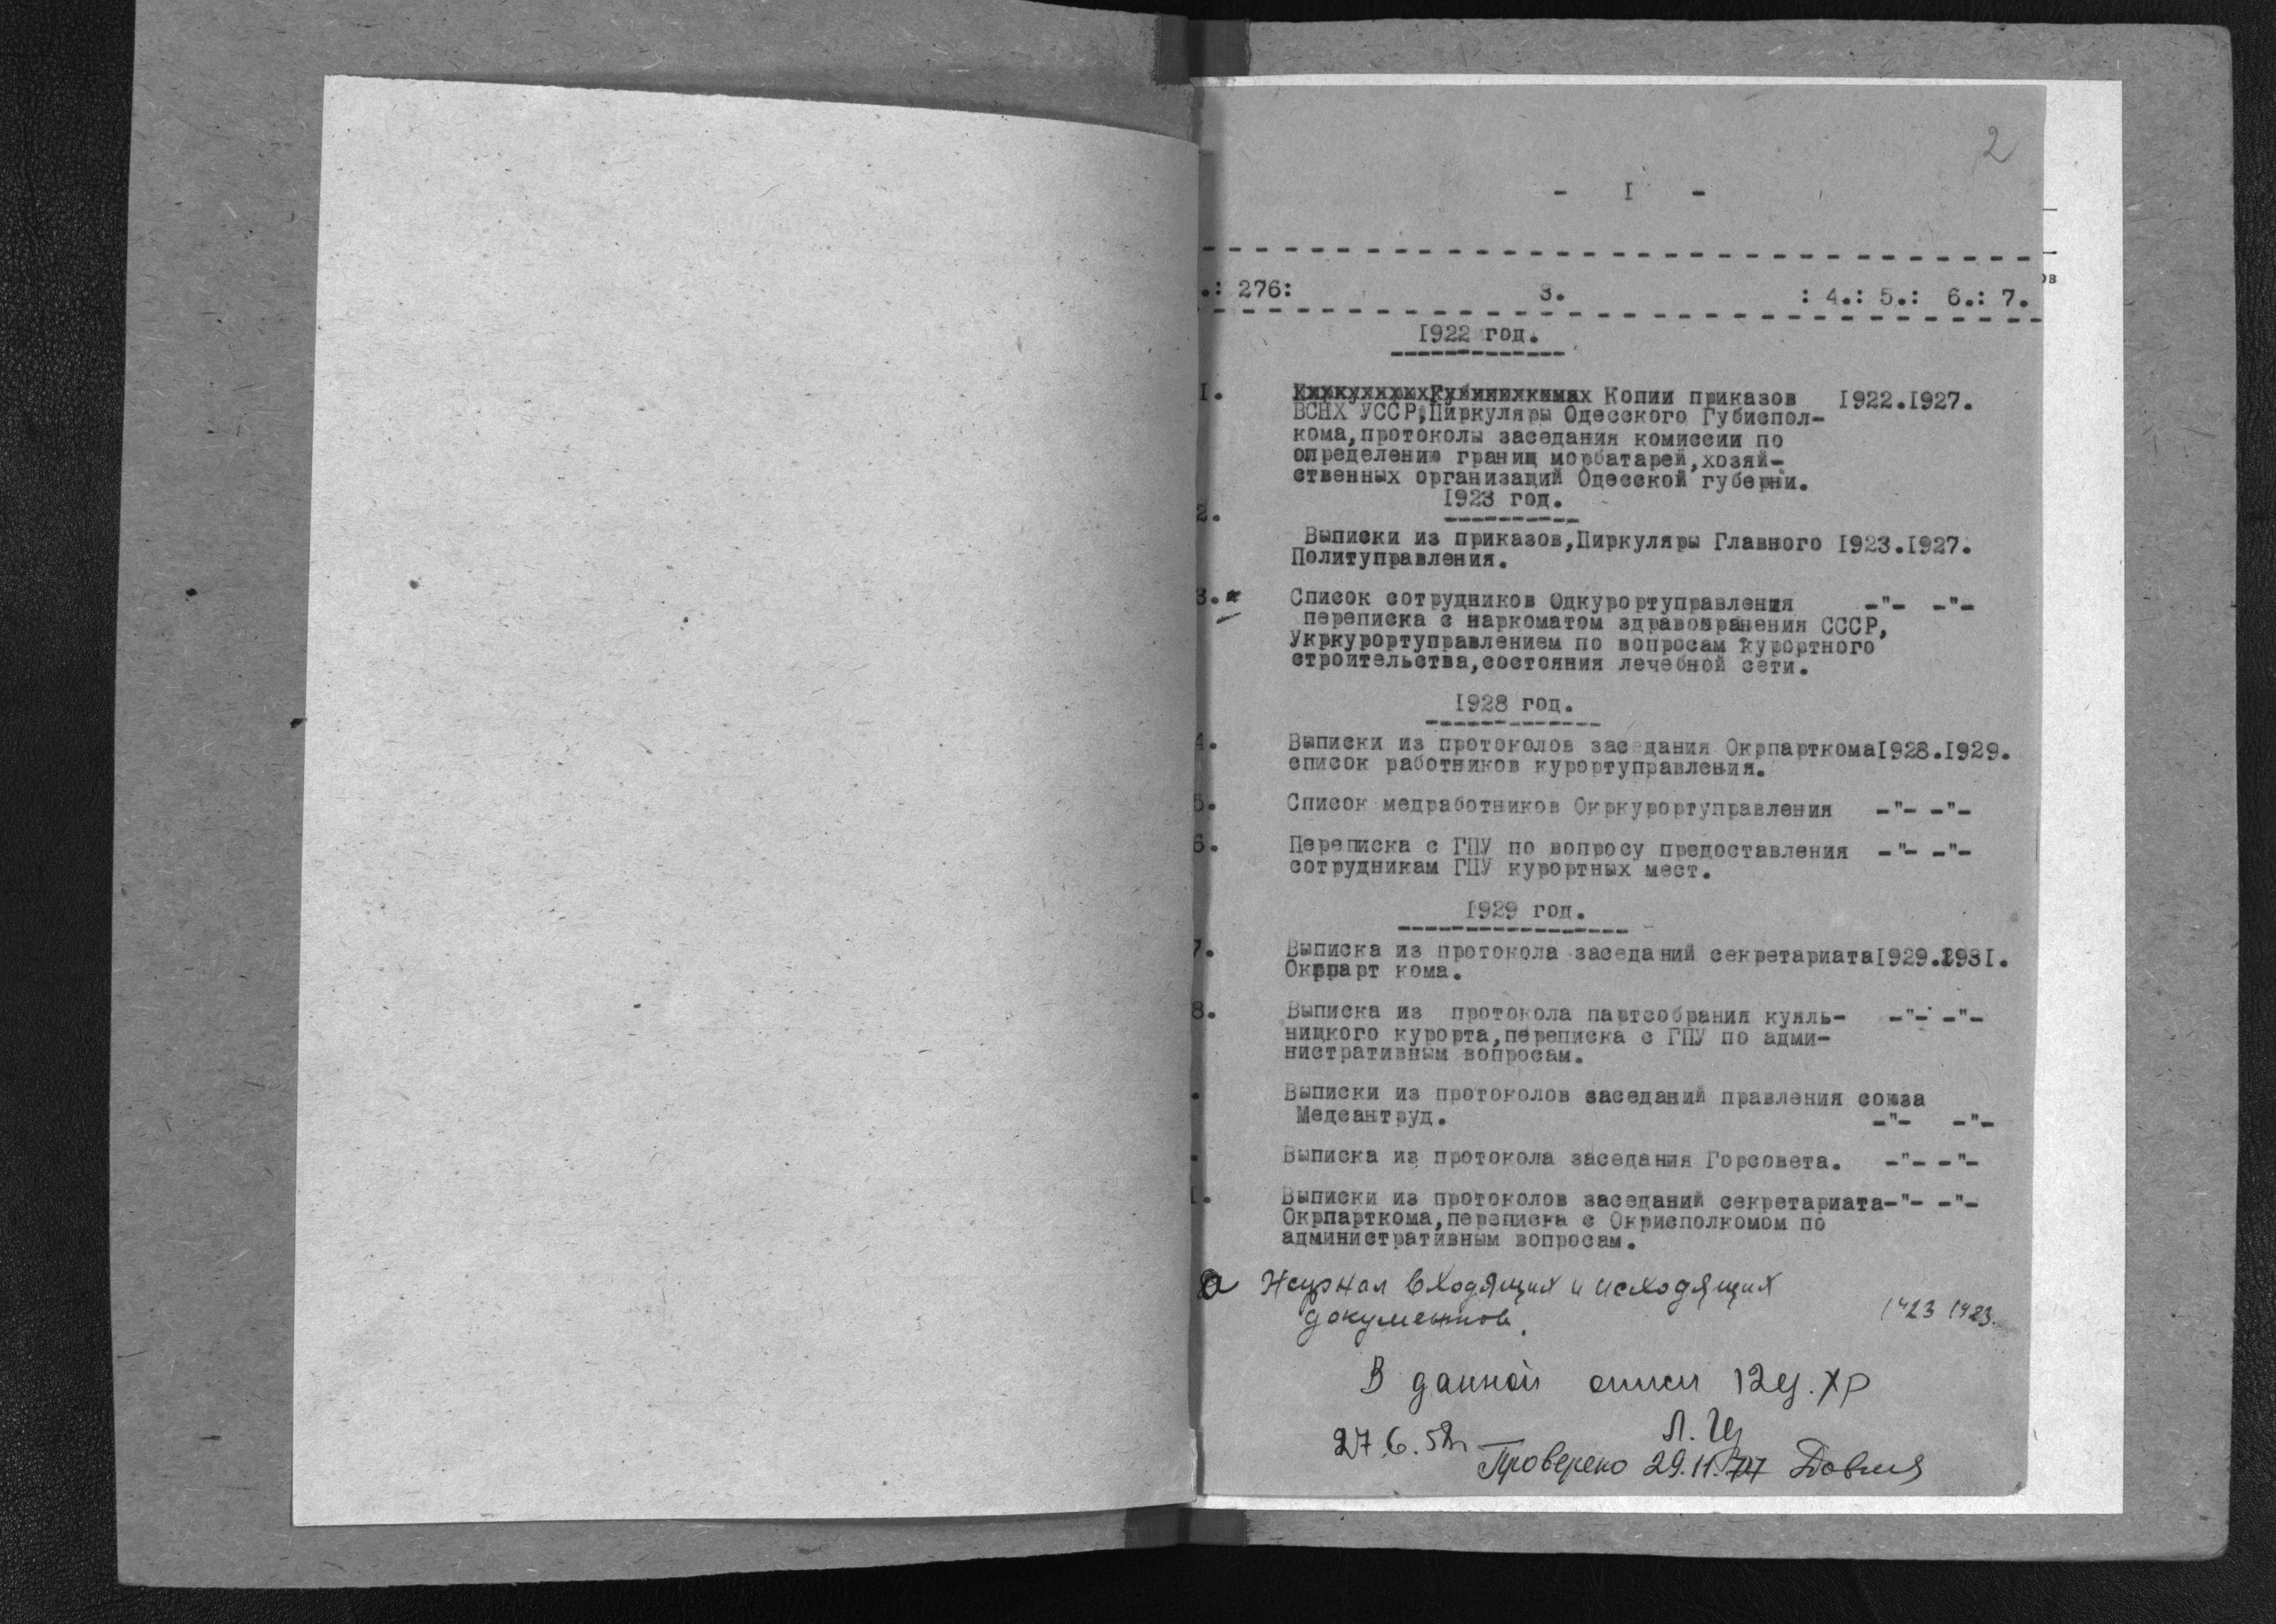 2
- I -
.: 276: 3. : 4.: 5.: 6.: 7.
1922 год.
I. Копии приказов 1922.1927.
ВСНХ УССР,Циркуляры Одесского Губиспол-
кома,протоколы заседания комиссии по
определению границ морбатарей,хозяй-
ственных организаций Одесской губерни.
1923 год.
2.
Выписки из приказов,Циркуляры Главного 1923.1927.
Политуправления.
3. Список сотрудников Одкурортуправления -"- -"-
переписка с наркоматом здравохранения СССР,
Укркурортуправлением по вопросам курортного
строительства,состояния лечебной сети.
1928 год.
4. Выписки из протоколов заседания Окрпарткома1928.1929.
список работников курортуправления.
5. Список медработников Окркурортуправления -"- -"-
6. Переписка с ГПУ по вопросу предоставления -"- -"-
сотрудникам ГПУ курортных мест.
1929 год.
7. Выписка из протокола заседаний секретариата1929.1931.
Окрпарт кома.
8. Выписка из протокола партсобрания куяль- -"- -"-
ницкого курорта,переписка с ГПУ по адми-
нистративным вопросам.
. Выписки из протоколов заседаний правления союза
Медсантруд. -"- -"-
. Выписка из протокола заседания Горсовета. -"- -"-
I. Выписки из протоколов заседаний секретариата-"- -"-
Окрпарткома,переписка с Окрисполкомом по
административным вопросам.
а Журнал входящих и исходящих
документов. 1923 1923.
В данной описи 12 ед. хр
27.6.52
Проверено 29.11.77